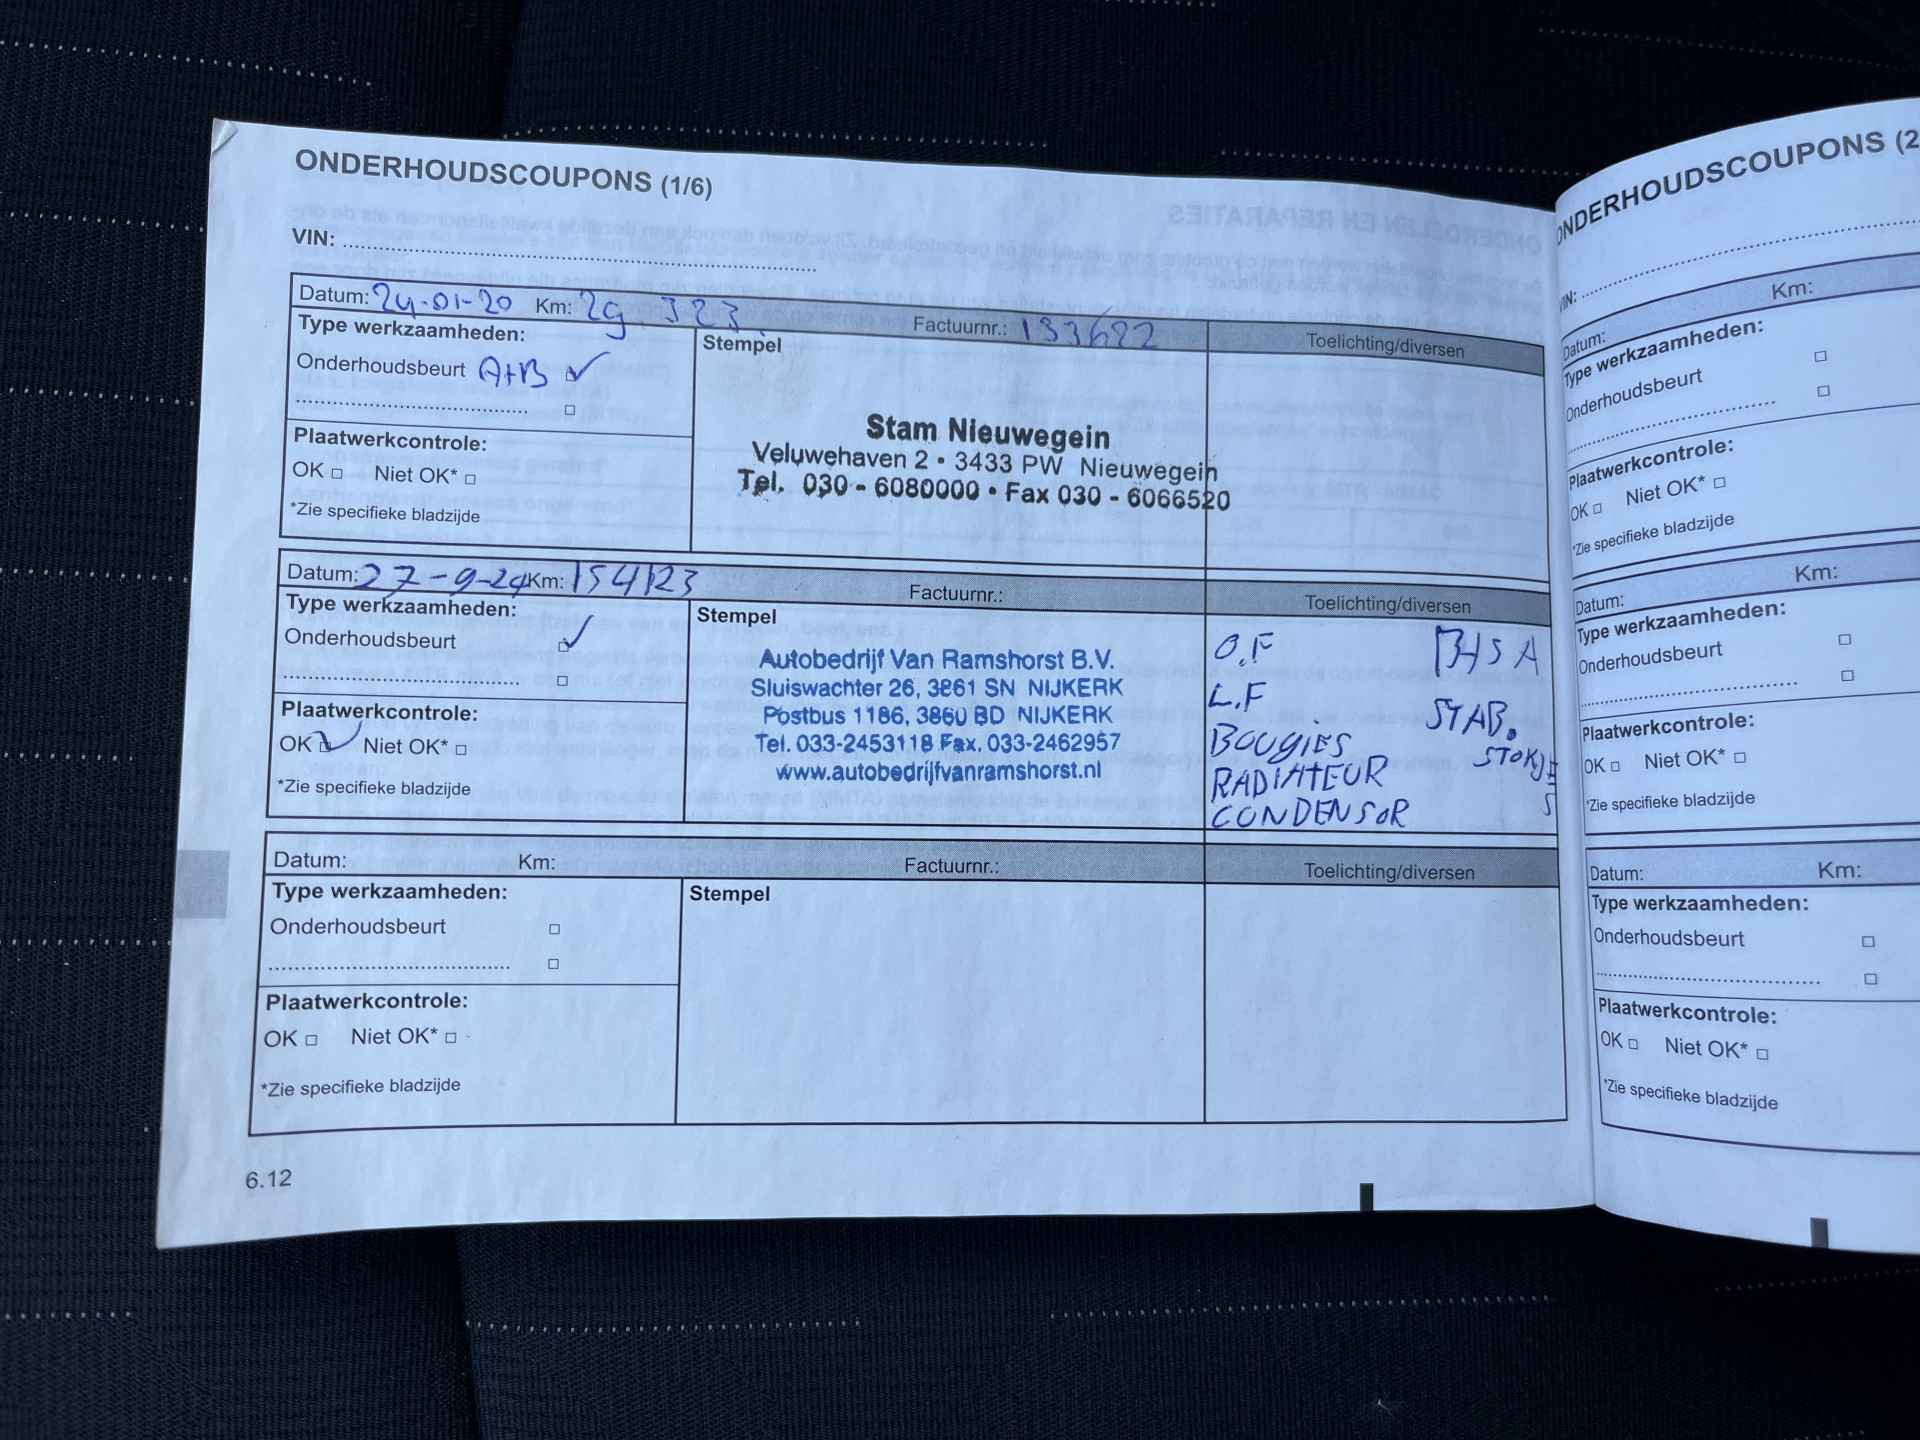 ONDERHOUDSCOUPONS (1/6)
VIN: ........
Datum: 24-01-20 Km: 29 323 Factuurnr.: 133622 Toelichting/diversen
Type werkzaamheden:
Stempel
Onderhoudsbeurt A+B
Plaatwerkcontrole:
OK Niet OK*
*Zie specifieke bladzijde
Stam Nieuwegein
Veluwehaven 2 • 3433 PW Nieuwegein
Tel. 030 - 6080000 • Fax 030 - 6066520
Datum: 27-9-24 Km: 154123 Factuurnr.: Toelichting/diversen
Type werkzaamheden:
Stempel
Onderhoudsbeurt
Plaatwerkcontrole:
OK Niet OK*
*Zie specifieke bladzijde
Autobedrijf Van Ramshorst B.V.
Sluiswachter 26, 3861 SN NIJKERK
Postbus 1186, 3860 BD NIJKERK
Tel. 033-2453118 Fax. 033-2462957
www.autobedrijfvanramshorst.nl
O.F
L.F
BOUGIES
RADIATEUR
CONDENSOR
STAB.
STOKJE
S
Datum: Km: Factuurnr.: Toelichting/diversen
Type werkzaamheden:
Stempel
Onderhoudsbeurt
Plaatwerkcontrole:
OK Niet OK*
*Zie specifieke bladzijde
6.12
ONDERHOUDSCOUPONS (2
VIN: ........
Datum: Km:
Type werkzaamheden:
Onderhoudsbeurt
Plaatwerkcontrole:
OK Niet OK*
*Zie specifieke bladzijde
Datum: Km:
Type werkzaamheden:
Onderhoudsbeurt
Plaatwerkcontrole:
OK Niet OK*
*Zie specifieke bladzijde
Datum: Km:
Type werkzaamheden:
Onderhoudsbeurt
Plaatwerkcontrole:
OK Niet OK*
*Zie specifieke bladzijde